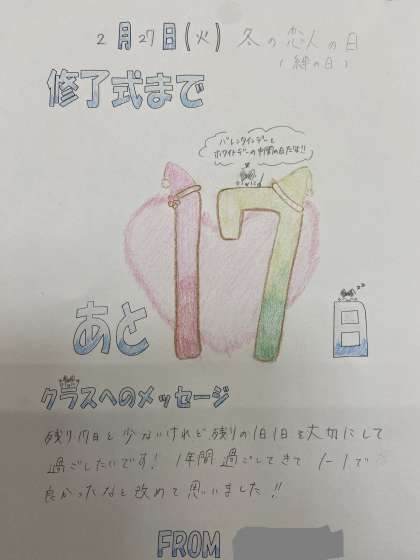 2月27日(火) 冬の恋人の日
(絆の日)
修了式まで
バレンタインデーと
ホワイトデーの中間の日だよ!!
あと17日
クラスへのメッセージ
残り17日と少ないけれど残りの1日1日を大切にして
過ごしたいです! 1年間過ごしてきて1-1で
良かったなと改めて思いました!!
FROM